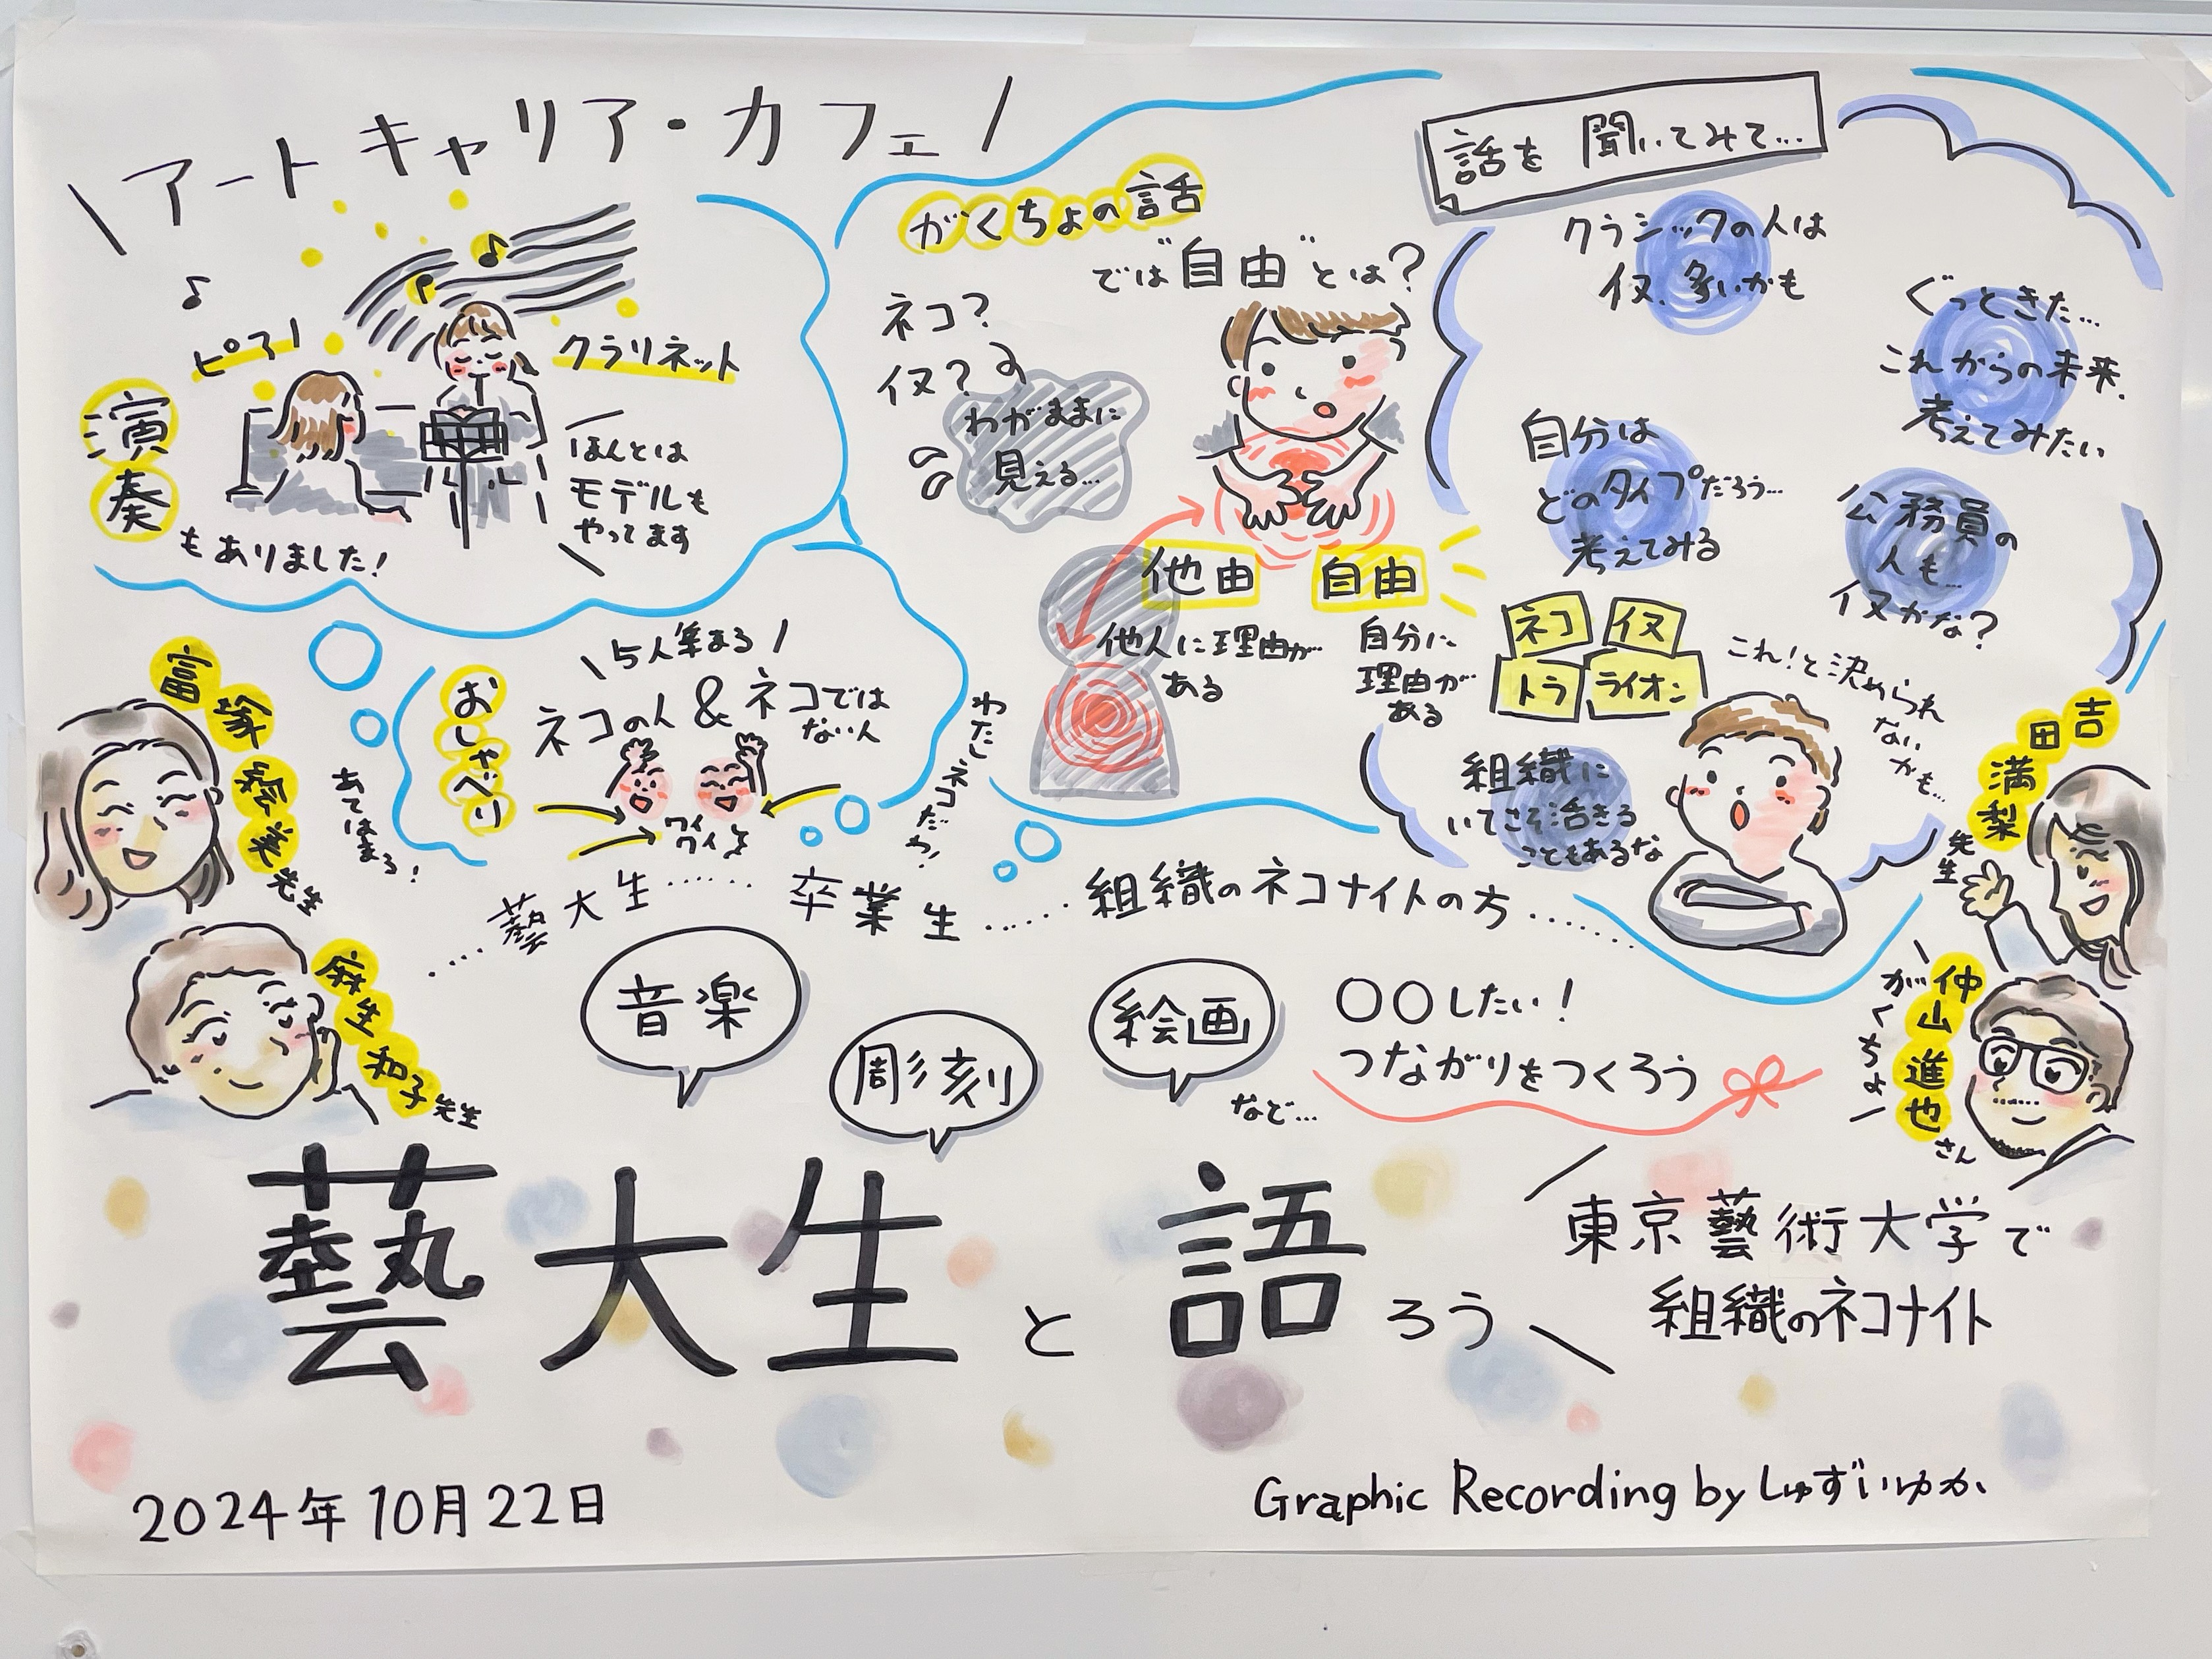 アートキャリア・カフェ
ピアノ
クラリネット
演奏
もありました!
ほんとは
モデルも
やってます
がくちょの話
では"自由"とは?
ネコ?
イヌ?
わがままに
見える…
他由
自由
他人に理由が
ある
自分に
理由が
ある
話を聞いてみて…
クラシックの人は
イヌ、多いかも
ぐっときた…
これからの未来、
考えてみたい
自分は
どのタイプだろう…
考えてみる
公務員の
人も…
イヌかな?
ネコ
イヌ
トラ
ライオン
これ!と決められ
ない
かも…
組織に
いてこそ活きる
こともあるな
おしゃべり
5人集まる
ネコの人&ネコでは
ない人
ワイ
ワイと
わたしネコだわ!
あてはまる!
先生
麻生和子先生
吉田満梨先生
がくちょー
仲山進也さん
…藝大生……卒業生……組織のネコナイトの方……
音楽
彫刻
絵画
など…
〇〇したい!
つながりをつくろう
藝大生と語ろう
東京藝術大学で
組織のネコナイト
2024年10月22日
Graphic Recording by しゅずいゆか